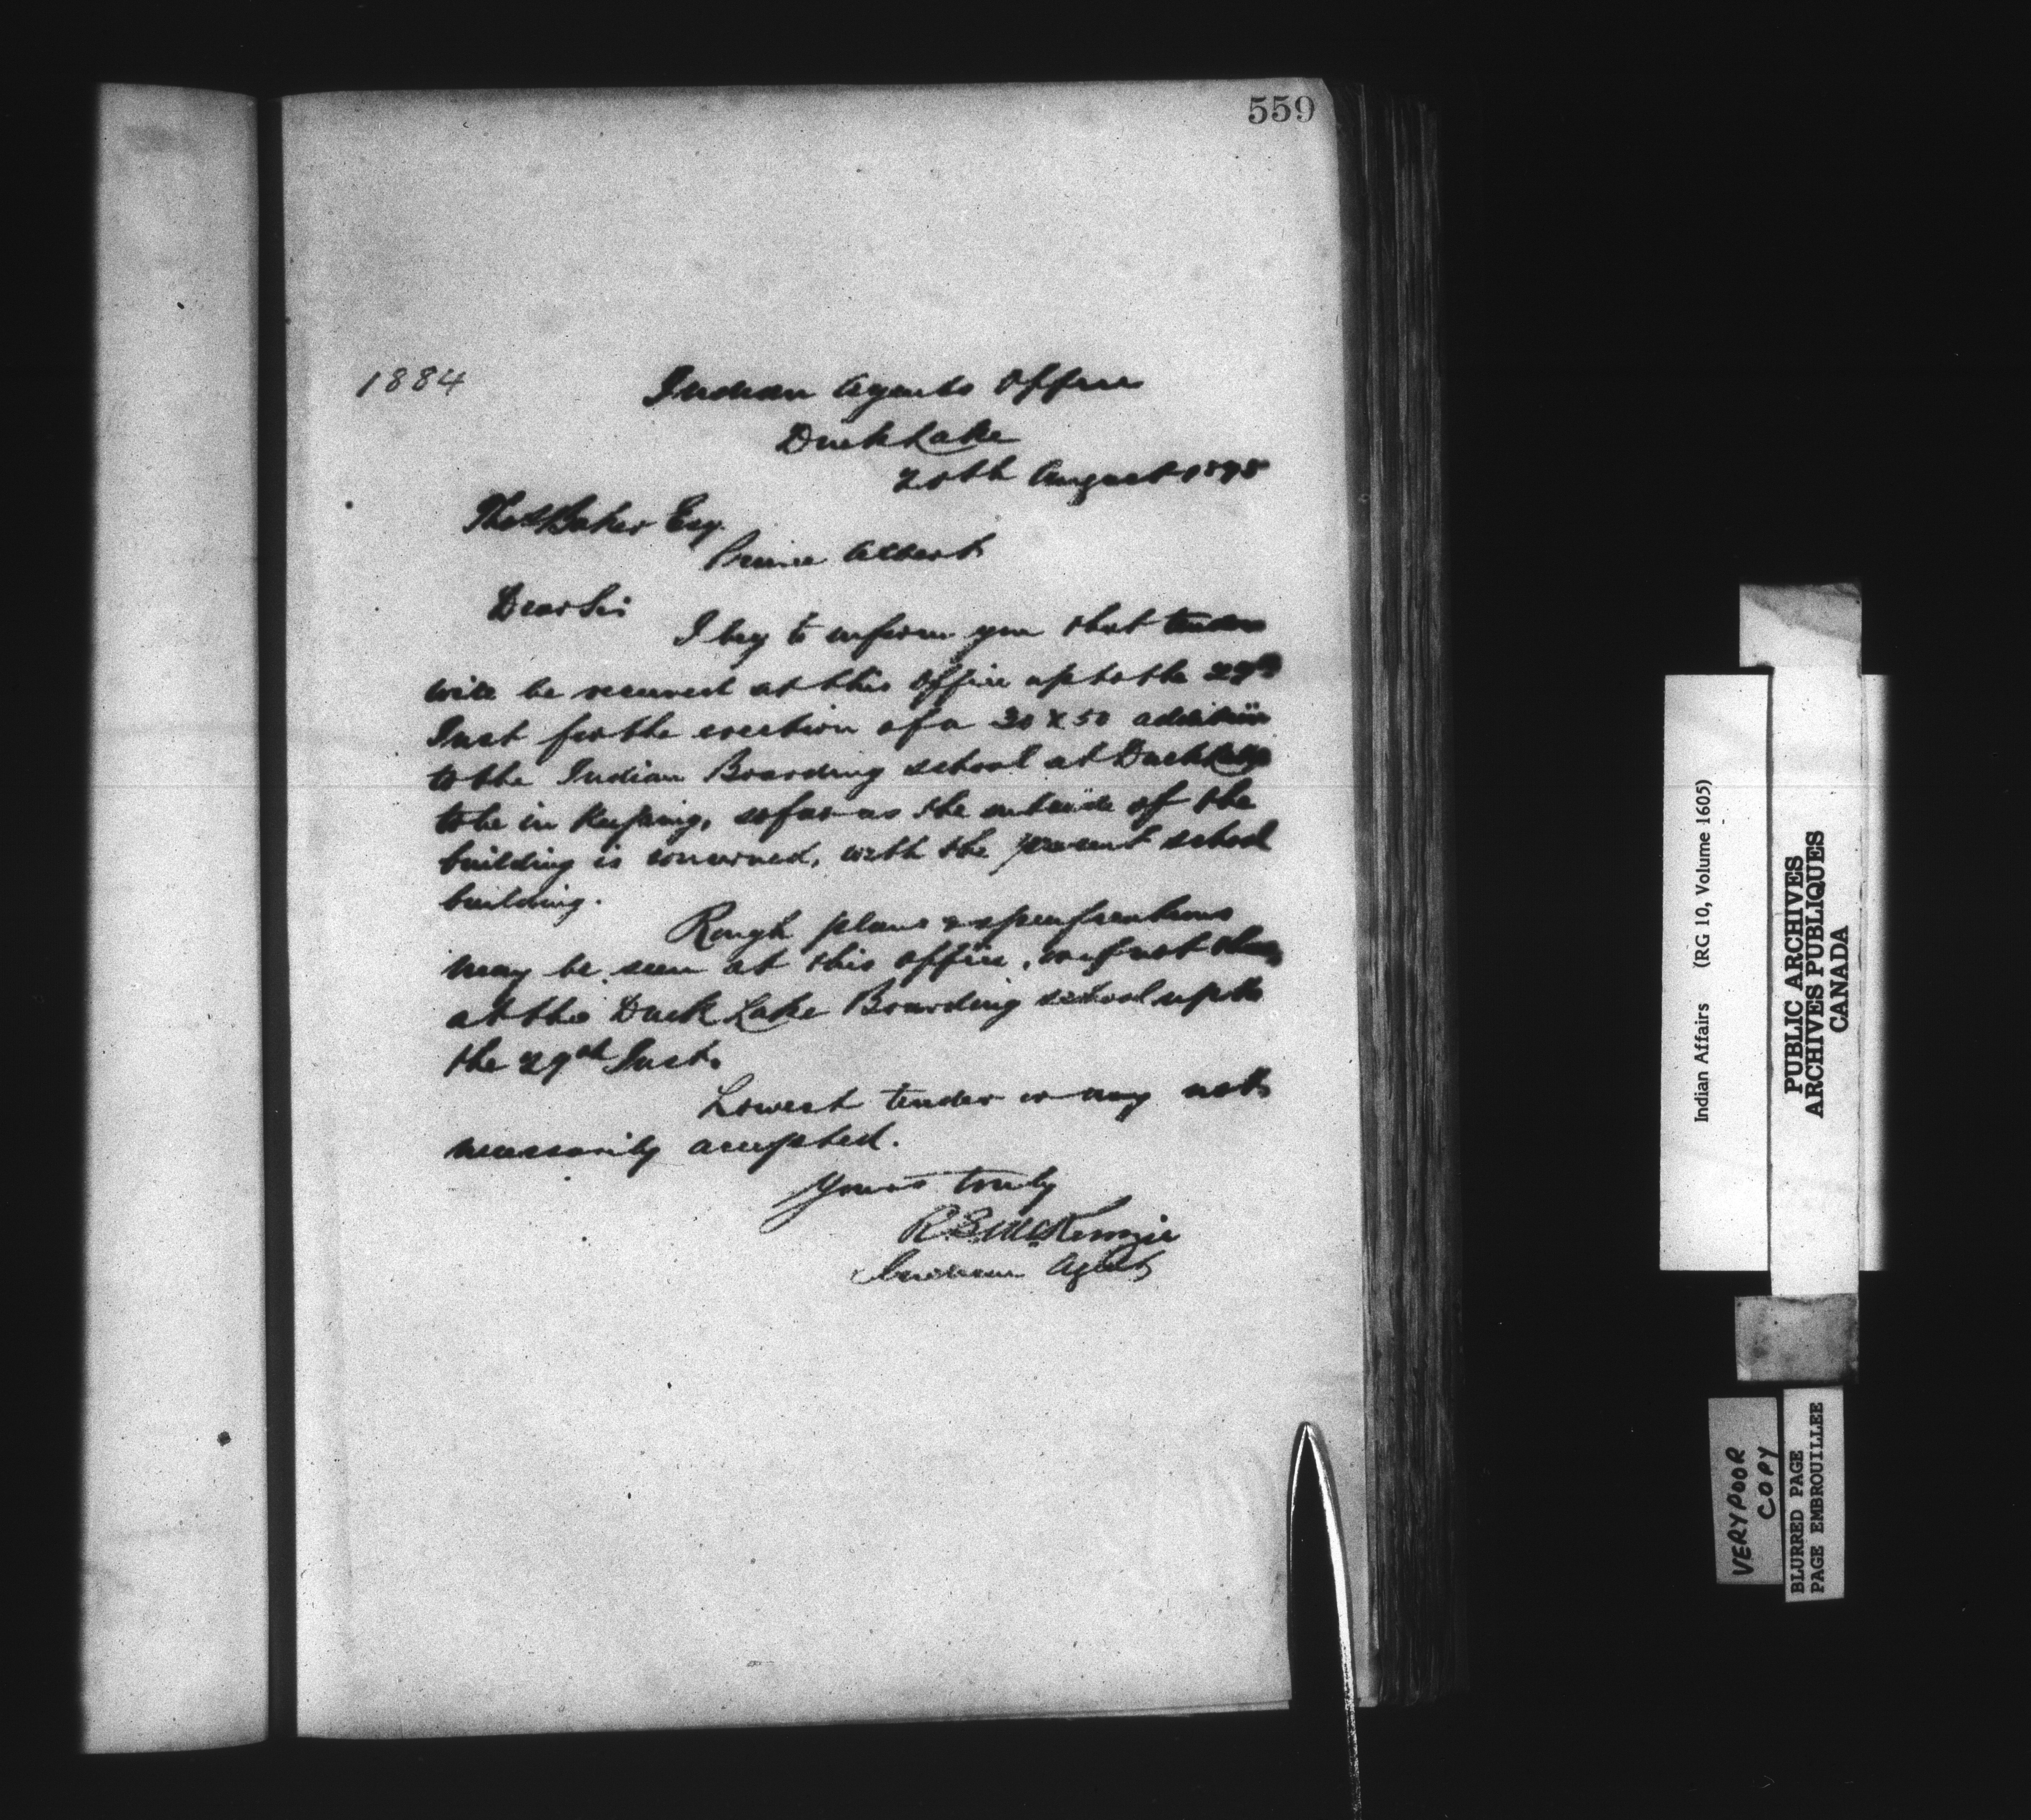 559
1884
Indian Agents Office
Duck Lake
20th August 1898
Thos Baker Esq.
Prince Albert
Dear Sir
I beg to inform you that tenders
will be received at this office up to the 29th
Inst for the erection of a 30 x 50 addition
to the Indian Boarding school at Duck Lake
to be in keeping, so far as the outside of the
building is concerned, with the present school
building.
Rough plans & specifications
may be seen at this office, or if not then
at the Duck Lake Boarding school up to
the 29th Inst.
Lowest tender or any not
necessarily accepted.
Yours truly
R S McKenzie
Indian Agent
Indian Affairs (RG 10, Volume 1605)
PUBLIC ARCHIVES
ARCHIVES PUBLIQUES
CANADA
VERY POOR
COPY
BLURRED PAGE
PAGE EMBROUILLEE